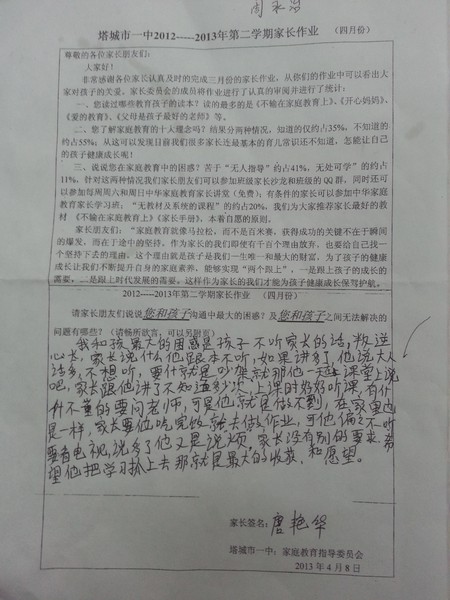 周永浩
塔城市一中2012-----2013年第二学期家长作业 （四月份）
尊敬的各位家长朋友们：
大家好！
非常感谢各位家长认真及时的完成三月份的家长作业，从你们的作业中可以看出大
家对孩子的关爱。家长委员会的成员将作业进行了认真的审阅并进行了统计：
一、您读过哪些教育孩子的读本？读的最多的是《不输在家庭教育上》、《开心妈妈》、
《爱的教育》、《父母是孩子最好的老师》等。
二、您了解家庭教育的十大观念吗？结果分两种情况，知道的仅约占35%，不知道的
约占55%，从这可以发现目前我们很多家长连最基本的育儿常识还不知道，怎能让自己
的孩子健康成长呢！
三、说说您在家庭教育中的困惑？苦于“无人指导”约占41%，无处可学”的约占
11%，针对这两种情况我们家长朋友们可以参加班级家长沙龙和班级的QQ群，同时还可
以参加每周周六和周日中华家庭教育家长讲饮（免费）；有条件的家长可以参加中华家庭
教育家长学习班；“无教材及系统的课程”的约占20%，我们为大家推荐家长最好的教
材 《不输在家庭教育上》《家长手册》，本着自愿的原则。
家长朋友们：“家庭教育就像马拉松，而不是百米赛，获得成功的关键不在于瞬间
的爆发，而在于途中的坚持。作为家长的我们即使有千百个理由放弃，也要给自己找一
个坚持下去的理由，这个理由就是孩子是我们一生唯一和最大的财富，为了孩子的健康
成长让我们不断提升自身的家庭素养，能够实现“两个跟上”，一是跟上孩子的成长的
需要，二是跟上时代发展的需要。这样作为家长的我们才能为孩子健康成长保驾护航。
2012-----2013年第二学期家长作业 （四月份）
请家长朋友们说说您和孩子沟通中最大的困惑？及您和孩子之间无法解决的
问题有哪些？（请畅所欲言，可以另附页）
我和孩子最大的困惑是孩子不听家长的话，叛逆
心大，家长说什么他跟本不听，如果讲多了，他说大人
话多，不想听，要什就是吵架就那他一天在课堂上说
吧，家长跟他讲了不知道多少次，上课时好好听课，有什
什不董的要问老师，可是他就是做不到，在家里也
是一样，家长要他吃完饭就去做作业，可他偏之不听
要看电视，说多了他又是说烦，家长没有别的要求，希
望他把学习抓上去那就是最大的收获，和愿望。
家长签名：唐艳华
塔城市一中：家庭教育指导委员会
2013年4月8日